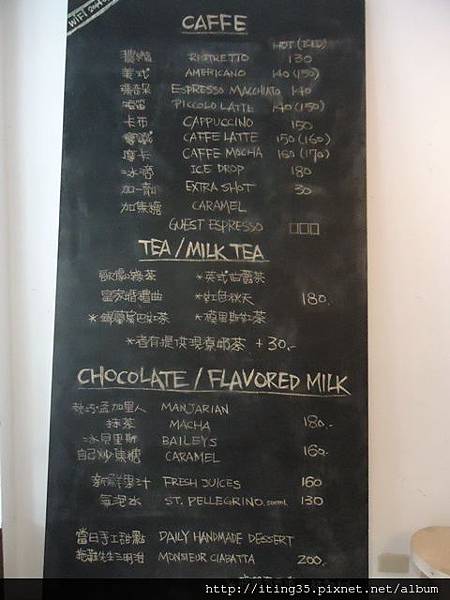 WIFI
CAFFE
HOT (ICED)
RISTRETTO 130
美式 AMERICANO 140 (150)
ESPRESSO MACCHIATO 140
PICCOLO LATTE 140 (150)
卡布 CAPPUCCINO 150
CAFFE LATTE 150 (160)
摩卡 CAFFE MOCHA 160 (170)
冰滴 ICE DROP 180
加一份 EXTRA SHOT 30
加焦糖 CARAMEL
GUEST ESPRESSO □□□
TEA / MILK TEA
*英式伯爵茶
180.
*錫蘭 紅茶 *模里斯紅茶
*者有提供現煮奶茶 +30.-
CHOCOLATE / FLAVORED MILK
熱巧.孟加里人 MANJARIAN
抹茶 MACHA 180.-
冰貝里斯 BAILEYS
自己炒焦糖 CARAMEL 160.-
新鮮果汁 FRESH JUICES 160
氣泡水 ST. PELLEGRINO 500ml 130
當日手工甜點 DAILY HANDMADE DESSERT
拖鞋先生三明治 MONSIEUR CIABATTA 200.-
http://iting35.pixnet.net/album